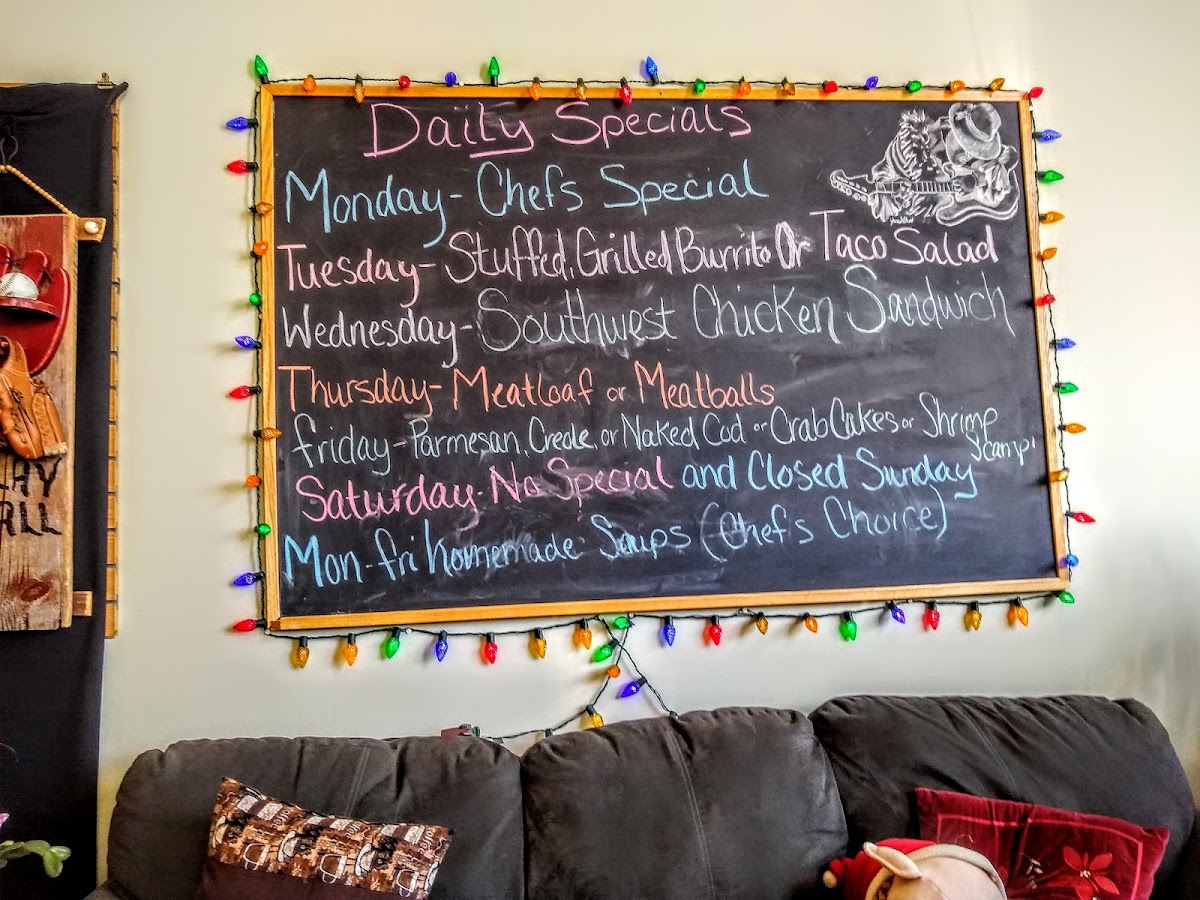 Daily Specials
Monday- Chefs Special
Tuesday- Stuffed, Grilled Burrito Or Taco Salad
Wednesday- Southwest Chicken Sandwich
Thursday- Meatloaf or Meatballs
friday- Parmesan, Creole, or Naked Cod or Crab Cakes or Shrimp
Scampi
Saturday- No Special and Closed Sunday
Mon-fri homemade Soups (Chef's Choice)